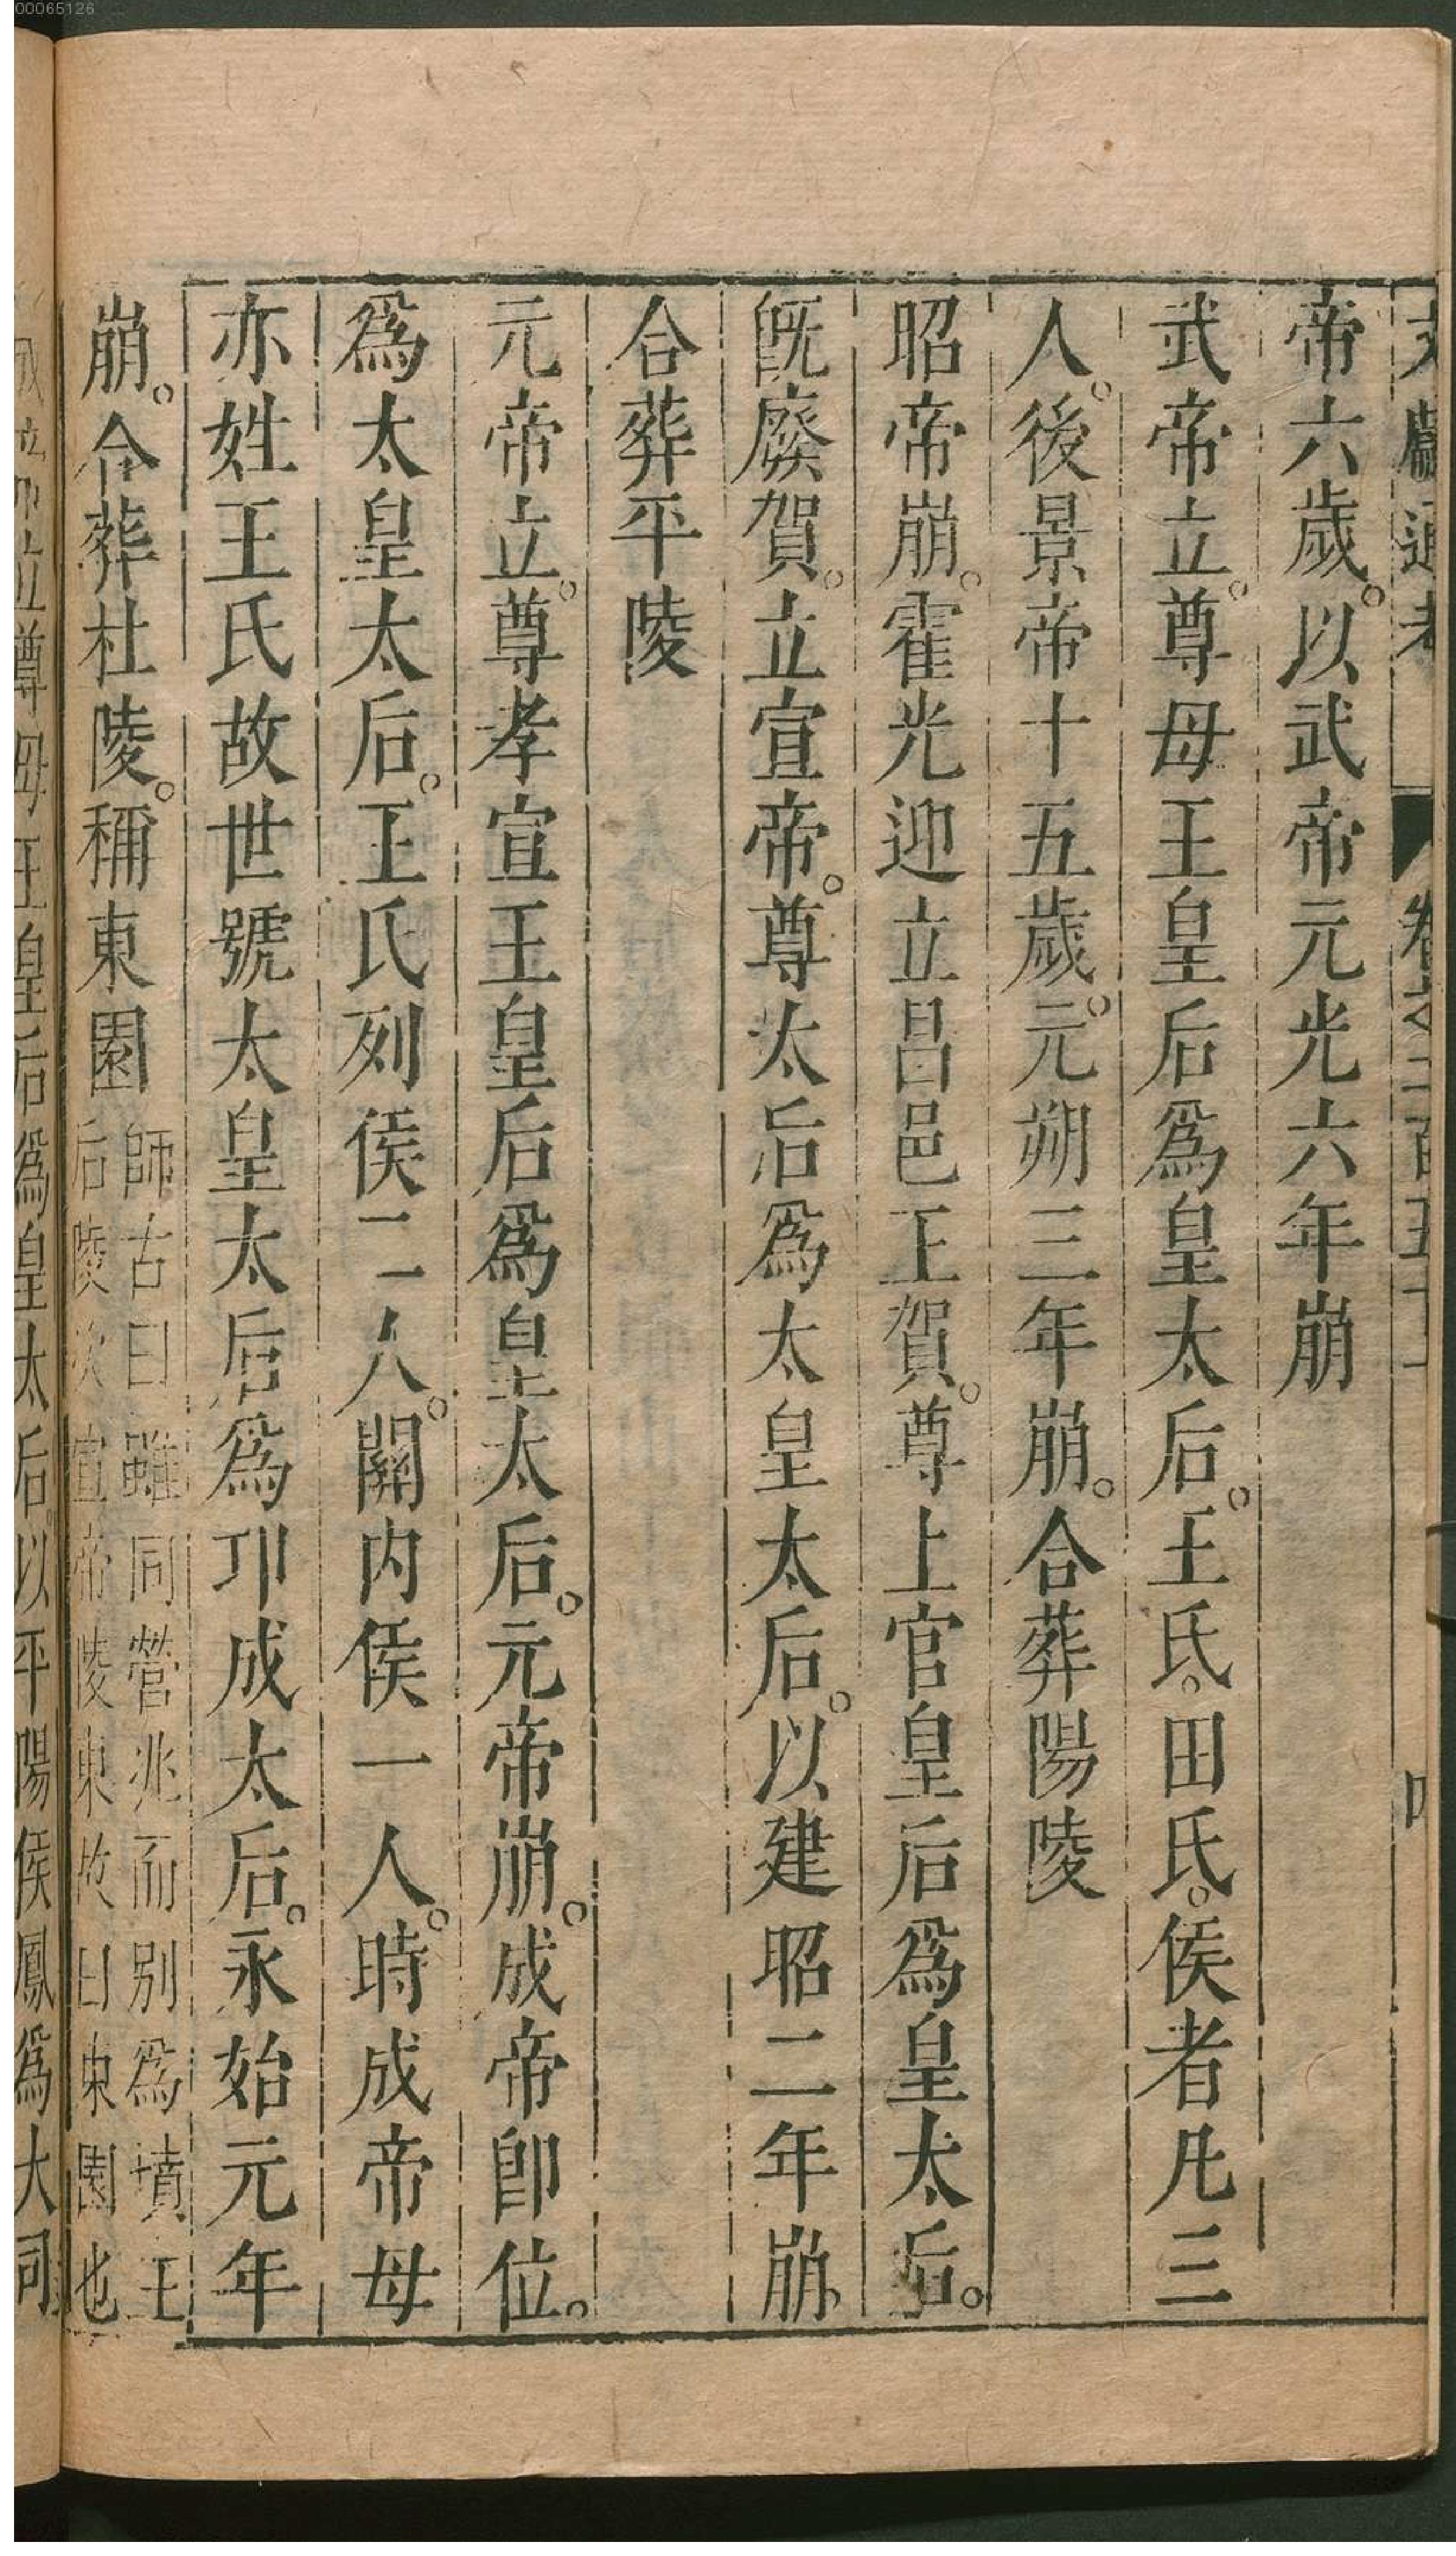 00065126
帝六歲。以武帝元光六年崩
武帝立。尊母王皇后爲皇太后。王氏。田氏。侯者凡三
人。後景帝十五歲。元朔三年崩。合葬陽陵
昭帝崩。霍光迎立昌邑王賀。尊上官皇后爲皇太后。
旣廢賀。立宣帝。尊太后爲太皇太后。以建昭二年崩。
合葬平陵
元帝立。尊孝宣王皇后爲皇太后。元帝崩。成帝卽位。
爲太皇太后。王氏列侯二人。關内侯一人。時成帝母
亦姓王氏故世號太皇太后爲邛成太后。永始元年
崩。合葬杜陵。稱東園
師古曰雖同營兆而别爲墳王
后陵次宣帝陵東故曰東園也
尊母王皇后爲皇太后。以平陽侯鳳爲大司